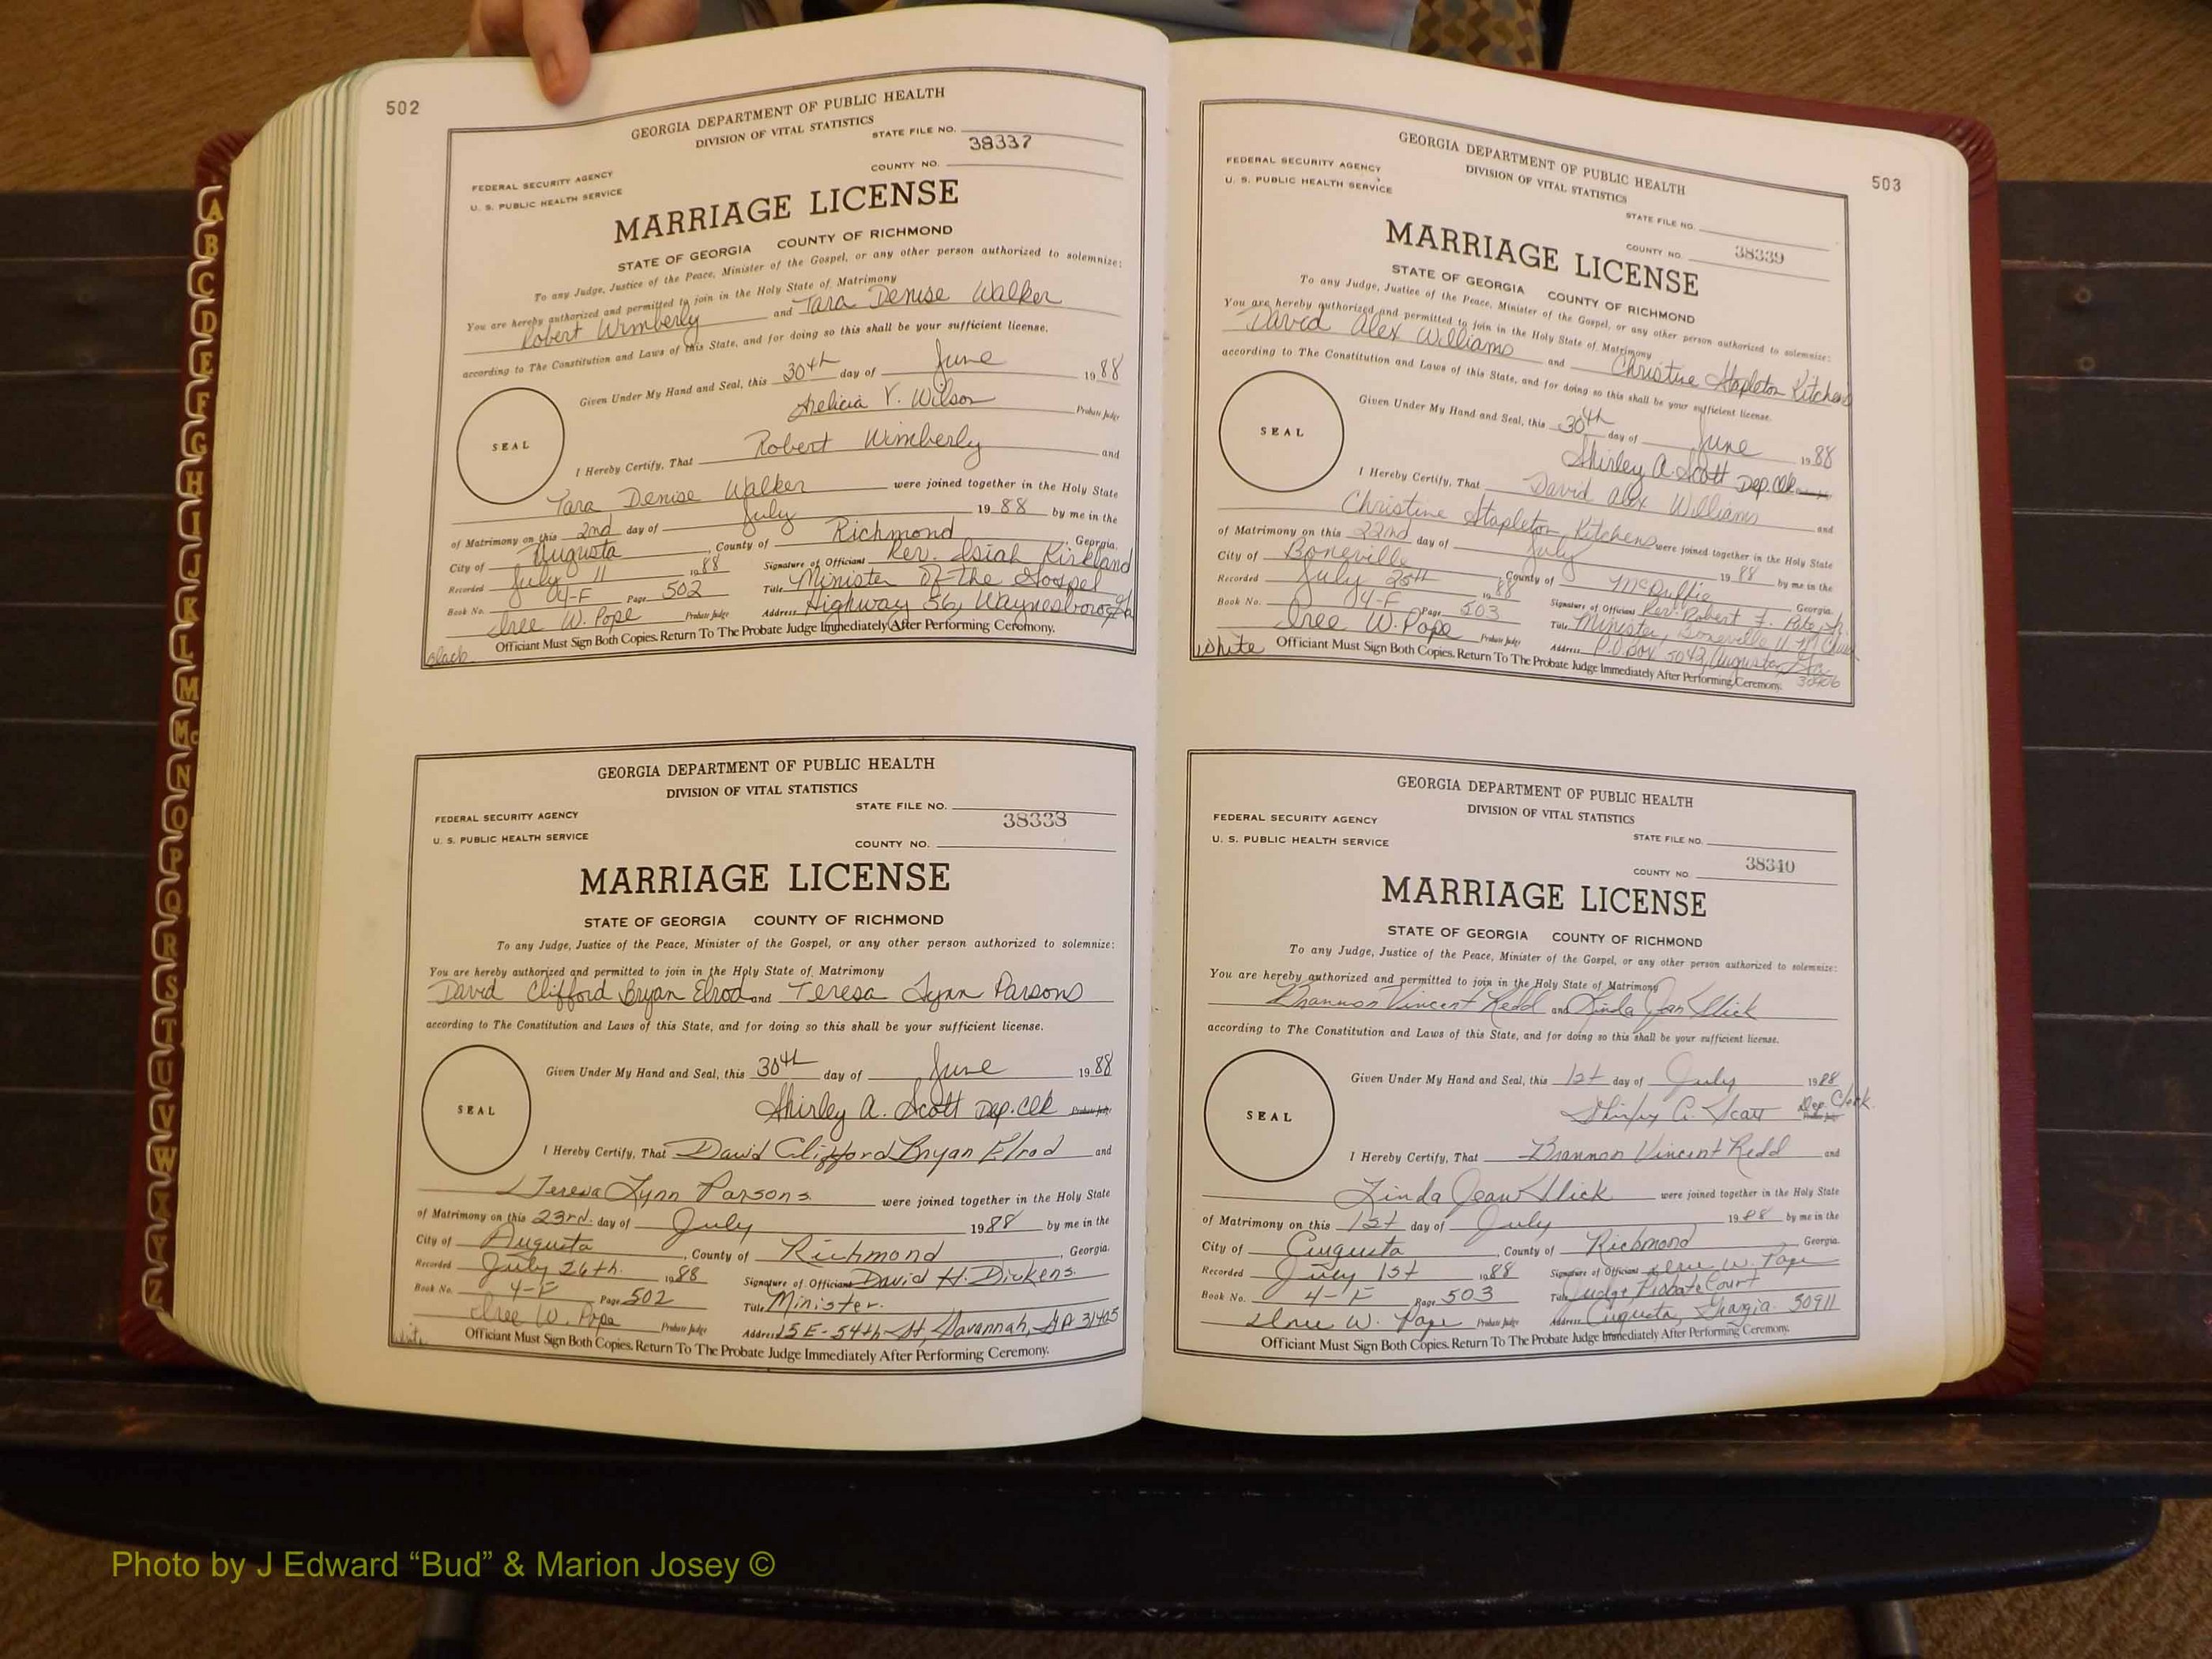 502
GEORGIA DEPARTMENT OF PUBLIC HEALTH
DIVISION OF VITAL STATISTICS
STATE FILE NO.
38337
COUNTY NO.
FEDERAL SECURITY AGENCY
U. S. PUBLIC HEALTH SERVICE
MARRIAGE LICENSE
STATE OF GEORGIA COUNTY OF RICHMOND
To any Judge, Justice of the Peace, Minister of the Gospel, or any other person authorized to solemnize:
You are hereby authorized and permitted to join in the Holy State of Matrimony
Robert Wimberly and Tara Denise Walker
according to The Constitution and Laws of this State, and for doing so this shall be your sufficient license.
Given Under My Hand and Seal, this 30th day of June 1988
V. Wilson Probate Judge
SEAL
I Hereby Certify, That Robert Wimberly and
Tara Denise Walker were joined together in the Holy State
of Matrimony on this 2nd day of July 1988 by me in the
City of Augusta, County of Richmond, Georgia.
Recorded July 11 1988 Signature of Officiant Rev. Isiah Kirkland
Book No. 04-F Page 502 Title Minister of the Gospel
Iree W. Pope Probate Judge Address Highway 56, Waynesboro Ga
Officiant Must Sign Both Copies. Return To The Probate Judge Immediately After Performing Ceremony.
Black
GEORGIA DEPARTMENT OF PUBLIC HEALTH
DIVISION OF VITAL STATISTICS
STATE FILE NO.
38338
FEDERAL SECURITY AGENCY
U. S. PUBLIC HEALTH SERVICE
COUNTY NO.
MARRIAGE LICENSE
STATE OF GEORGIA COUNTY OF RICHMOND
To any Judge, Justice of the Peace, Minister of the Gospel, or any other person authorized to solemnize:
You are hereby authorized and permitted to join in the Holy State of Matrimony
David Clifford Bryan Elrod and Teresa Lynn Parsons
according to The Constitution and Laws of this State, and for doing so this shall be your sufficient license.
Given Under My Hand and Seal, this 30th day of June 1988
Shirley A. Scott Dep. Clk Probate Judge
SEAL
I Hereby Certify, That David Clifford Bryan Elrod and
Teresa Lynn Parsons were joined together in the Holy State
of Matrimony on this 23rd. day of July 1988 by me in the
City of Augusta, County of Richmond, Georgia.
Recorded July 26th. 1988 Signature of Officiant David H. Dickens.
Book No. 4-F Page 502 Title Minister.
Iree W. Pope Probate Judge Address 15 E-54th St. Savannah, GA 31405
White Officiant Must Sign Both Copies. Return To The Probate Judge Immediately After Performing Ceremony.
503
GEORGIA DEPARTMENT OF PUBLIC HEALTH
DIVISION OF VITAL STATISTICS
FEDERAL SECURITY AGENCY
U. S. PUBLIC HEALTH SERVICE
STATE FILE NO.
COUNTY NO. 38339
MARRIAGE LICENSE
STATE OF GEORGIA COUNTY OF RICHMOND
To any Judge, Justice of the Peace, Minister of the Gospel, or any other person authorized to solemnize:
You are hereby authorized and permitted to join in the Holy State of Matrimony
David Alex Williams and Christine Stapleton Kitchens
according to The Constitution and Laws of this State, and for doing so this shall be your sufficient license.
Given Under My Hand and Seal, this 30th day of June 1988
Shirley A. Scott Dep. Clk
SEAL
I Hereby Certify, That David Alex Williams and
Christine Stapleton Kitchens were joined together in the Holy State
of Matrimony on this 22nd day of July 1988 by me in the
City of Boneville, County of McDuffie Georgia.
Recorded July 25th 1988 Signature of Officiant Rev. Robert F.
Book No. 04-F Page 503 Title Minister, Boneville
Iree W. Pope Probate Judge Address P.O. Box 5042, Augusta, Ga
White Officiant Must Sign Both Copies. Return To The Probate Judge Immediately After Performing Ceremony. 30906
GEORGIA DEPARTMENT OF PUBLIC HEALTH
DIVISION OF VITAL STATISTICS
FEDERAL SECURITY AGENCY
U. S. PUBLIC HEALTH SERVICE
STATE FILE NO.
38340
COUNTY NO.
MARRIAGE LICENSE
STATE OF GEORGIA COUNTY OF RICHMOND
To any Judge, Justice of the Peace, Minister of the Gospel, or any other person authorized to solemnize:
You are hereby authorized and permitted to join in the Holy State of Matrimony
Brannon Vincent Redd and Linda Jean Slick
according to The Constitution and Laws of this State, and for doing so this shall be your sufficient license.
Given Under My Hand and Seal, this 1st day of July 1988
Shirley A. Scott Dep. Clerk
SEAL
I Hereby Certify, That Brannon Vincent Redd and
Linda Jean Slick were joined together in the Holy State
of Matrimony on this 1st day of July 1988 by me in the
City of Augusta, County of Richmond Georgia.
Recorded July 1st 1988 Signature of Officiant Iree W. Pope
Book No. 4-F Page 503 Title Judge Probate Court
Iree W. Pope Probate Judge Address Augusta, Georgia 30911
Officiant Must Sign Both Copies. Return To The Probate Judge Immediately After Performing Ceremony.
A
B
C
D
E
F
G
H
I
J
K
L
M
Mc
N
O
P
Q
R
S
T
U
V
W
X
Y
Z
Photo by J Edward “Bud” & Marion Josey ©